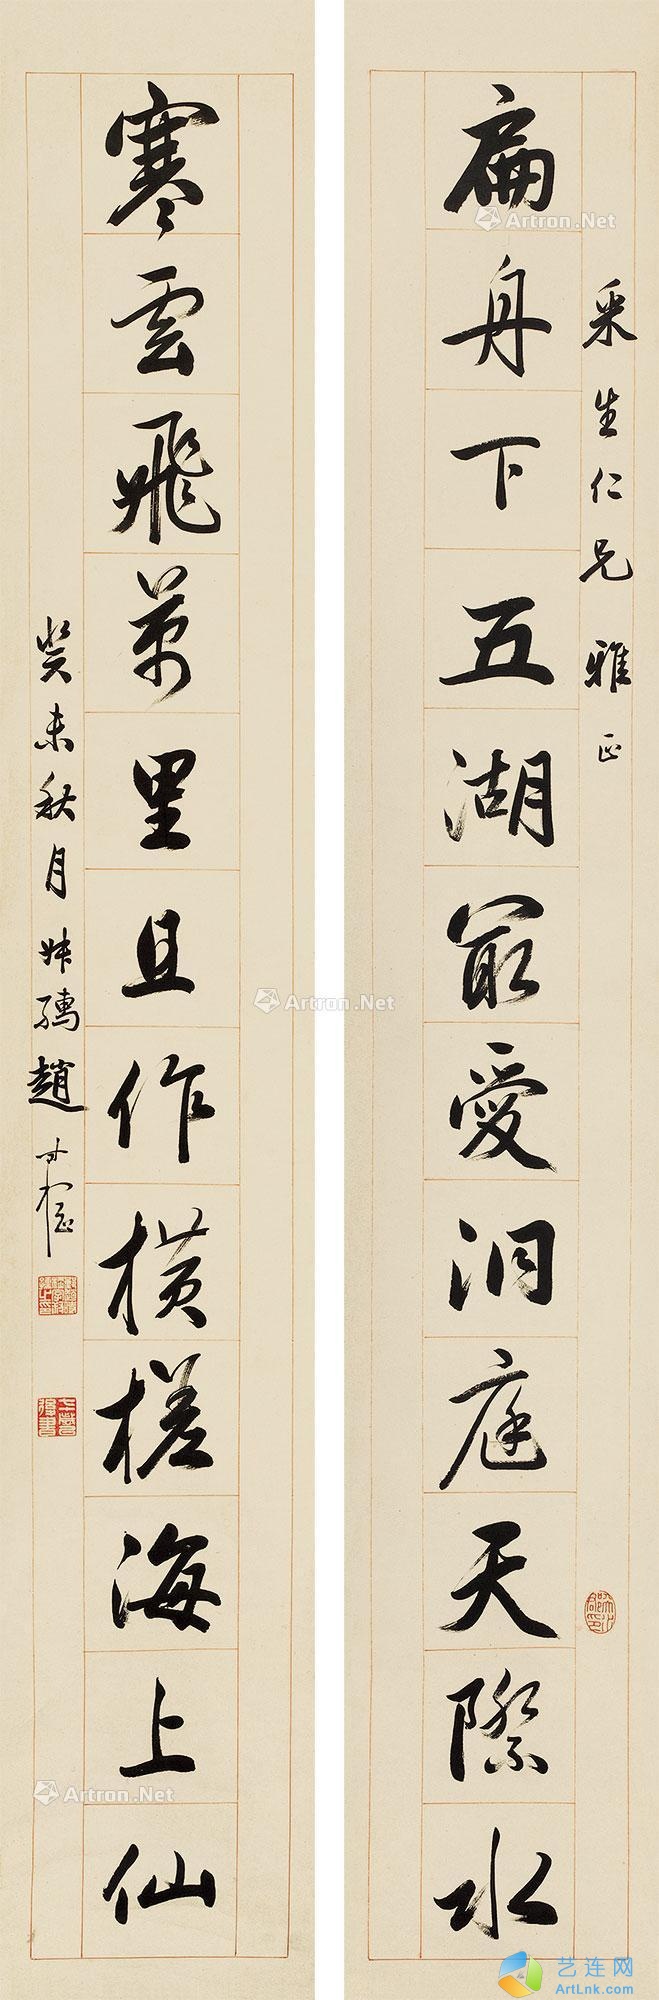 采生仁兄 雅正
扁舟下五湖最愛洞庭天際水
寒雲飛萬里且作橫槎海上仙
癸未秋月 趙
Artron.Net
Artron.Net
Artron.Net
艺连网
ArtLnk.com